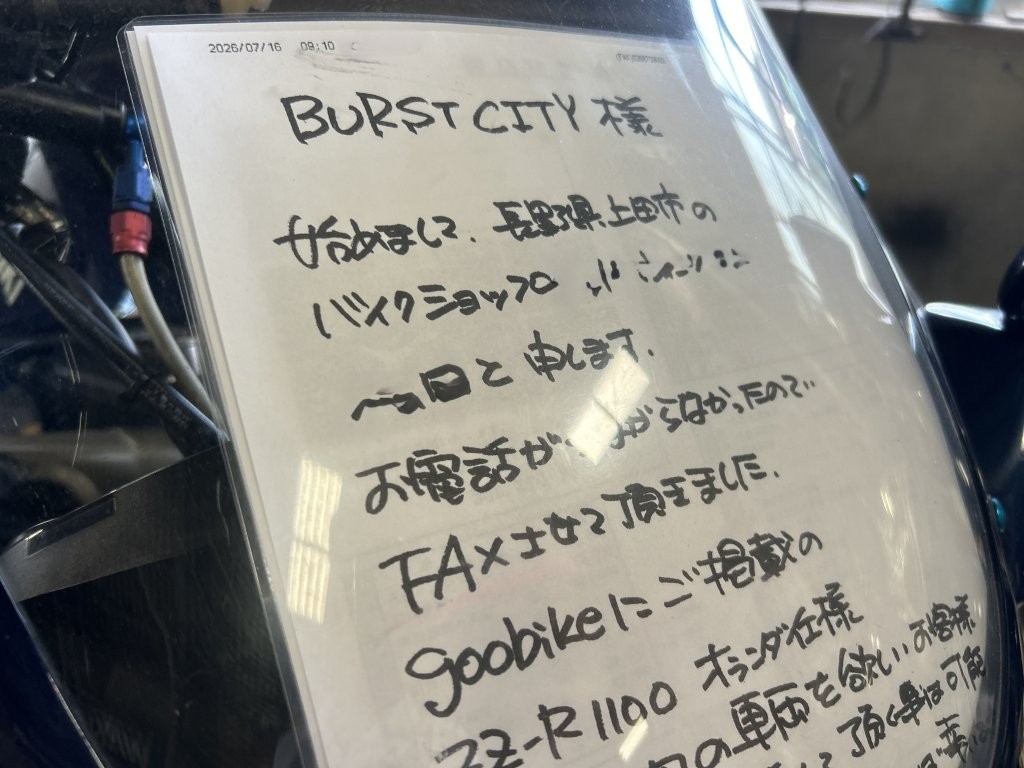 2026/07/16 09:10
BURST CITY 様
始めまして、長野県上田市の
バイクショップ
と申します.
お電話がつながらなかったので
FAXさせて頂きました.
goobikeにご掲載の
ZZ-R1100 オランダ仕様
の車両を欲しいお客様
て頂く事は可能